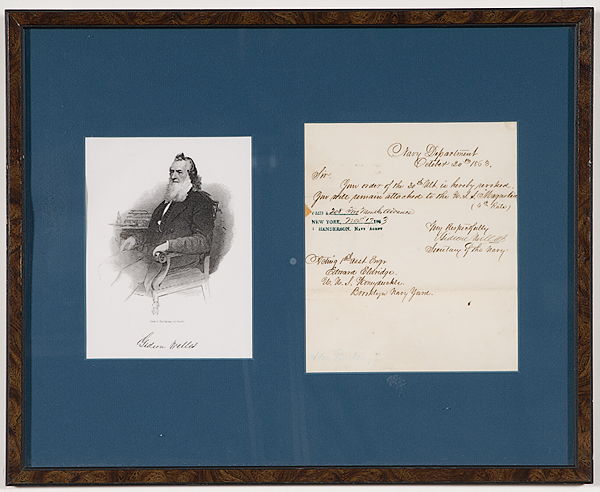 Gideon Welles
Navy Department
October 20th 1863.
Sir
Your order of the 30th Ult. is hereby revoked.
You will remain attached to the U.S.S. Magnolia
(4th Rate)
Very Respectfully
Gideon Welles
Secretary of the Navy
PAID $
NEW YORK, 1863
HENDERSON, Navy Agent
Acting 1st Asst Engr
Edward Eldridge
U.S.S. Honeysuckle
Brooklyn Navy Yard.